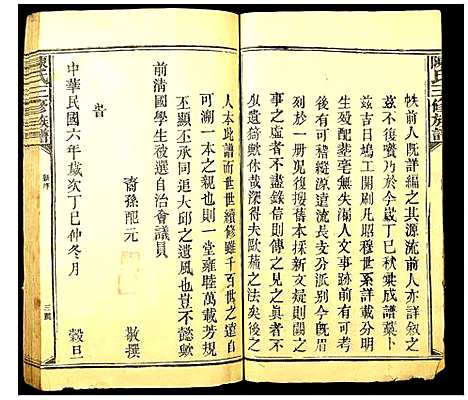 陳氏三修族譜
帙前人既詳編之其源流前人亦詳敘之
茲不復贅乃於今歲丁巳秋槳成譜墓卜
茲吉日塢工開刷凡昭穆世系詳載分明
生歿配葬毫無失溺人文事跡前有可考
者今則稽縱源遠流長支分派別今既眉
列於一冊況復搜舊本採新文疑則闕之
事之虛者不盡錄信則傳之見之真者不
必遺猗歟休哉深得夫歐蘇之法矣後之
人本此譜而世世續修雖千百世之遠自
可溯一本之親也則一堂雍睦萬載芳規
丕顯丕承同追大邱之遺風也豈不懿歟
前清國學生被選自治會議員
裔孫配元
敬撰
中華民國六年歲次丁巳仲冬月
穀旦
陳氏三修族譜
新序
三